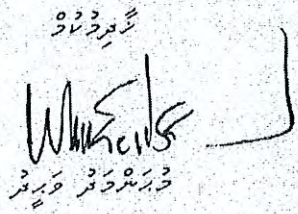 ޚާދިމުކުމް
މުޙައްމަދު ވަޙީދު